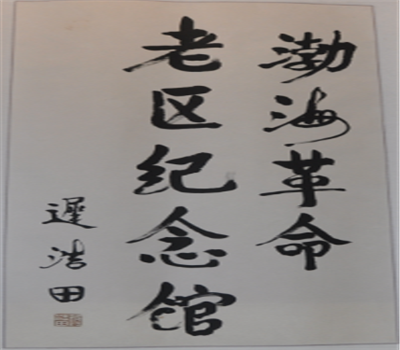 渤海革命
老区纪念馆
遲浩田